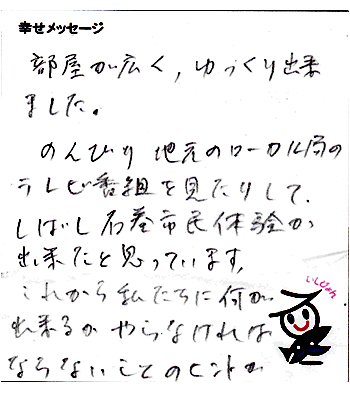 幸せメッセージ
部屋が広く，ゆっくり出来
ました。
のんびり 地元のローカル局の
テレビ番組を見たりして、
しばし石巻市民体験が
出来たと思っています。
これから私たちに何が
出来るか やらなければ
ならないことのヒントが
いしぴょん